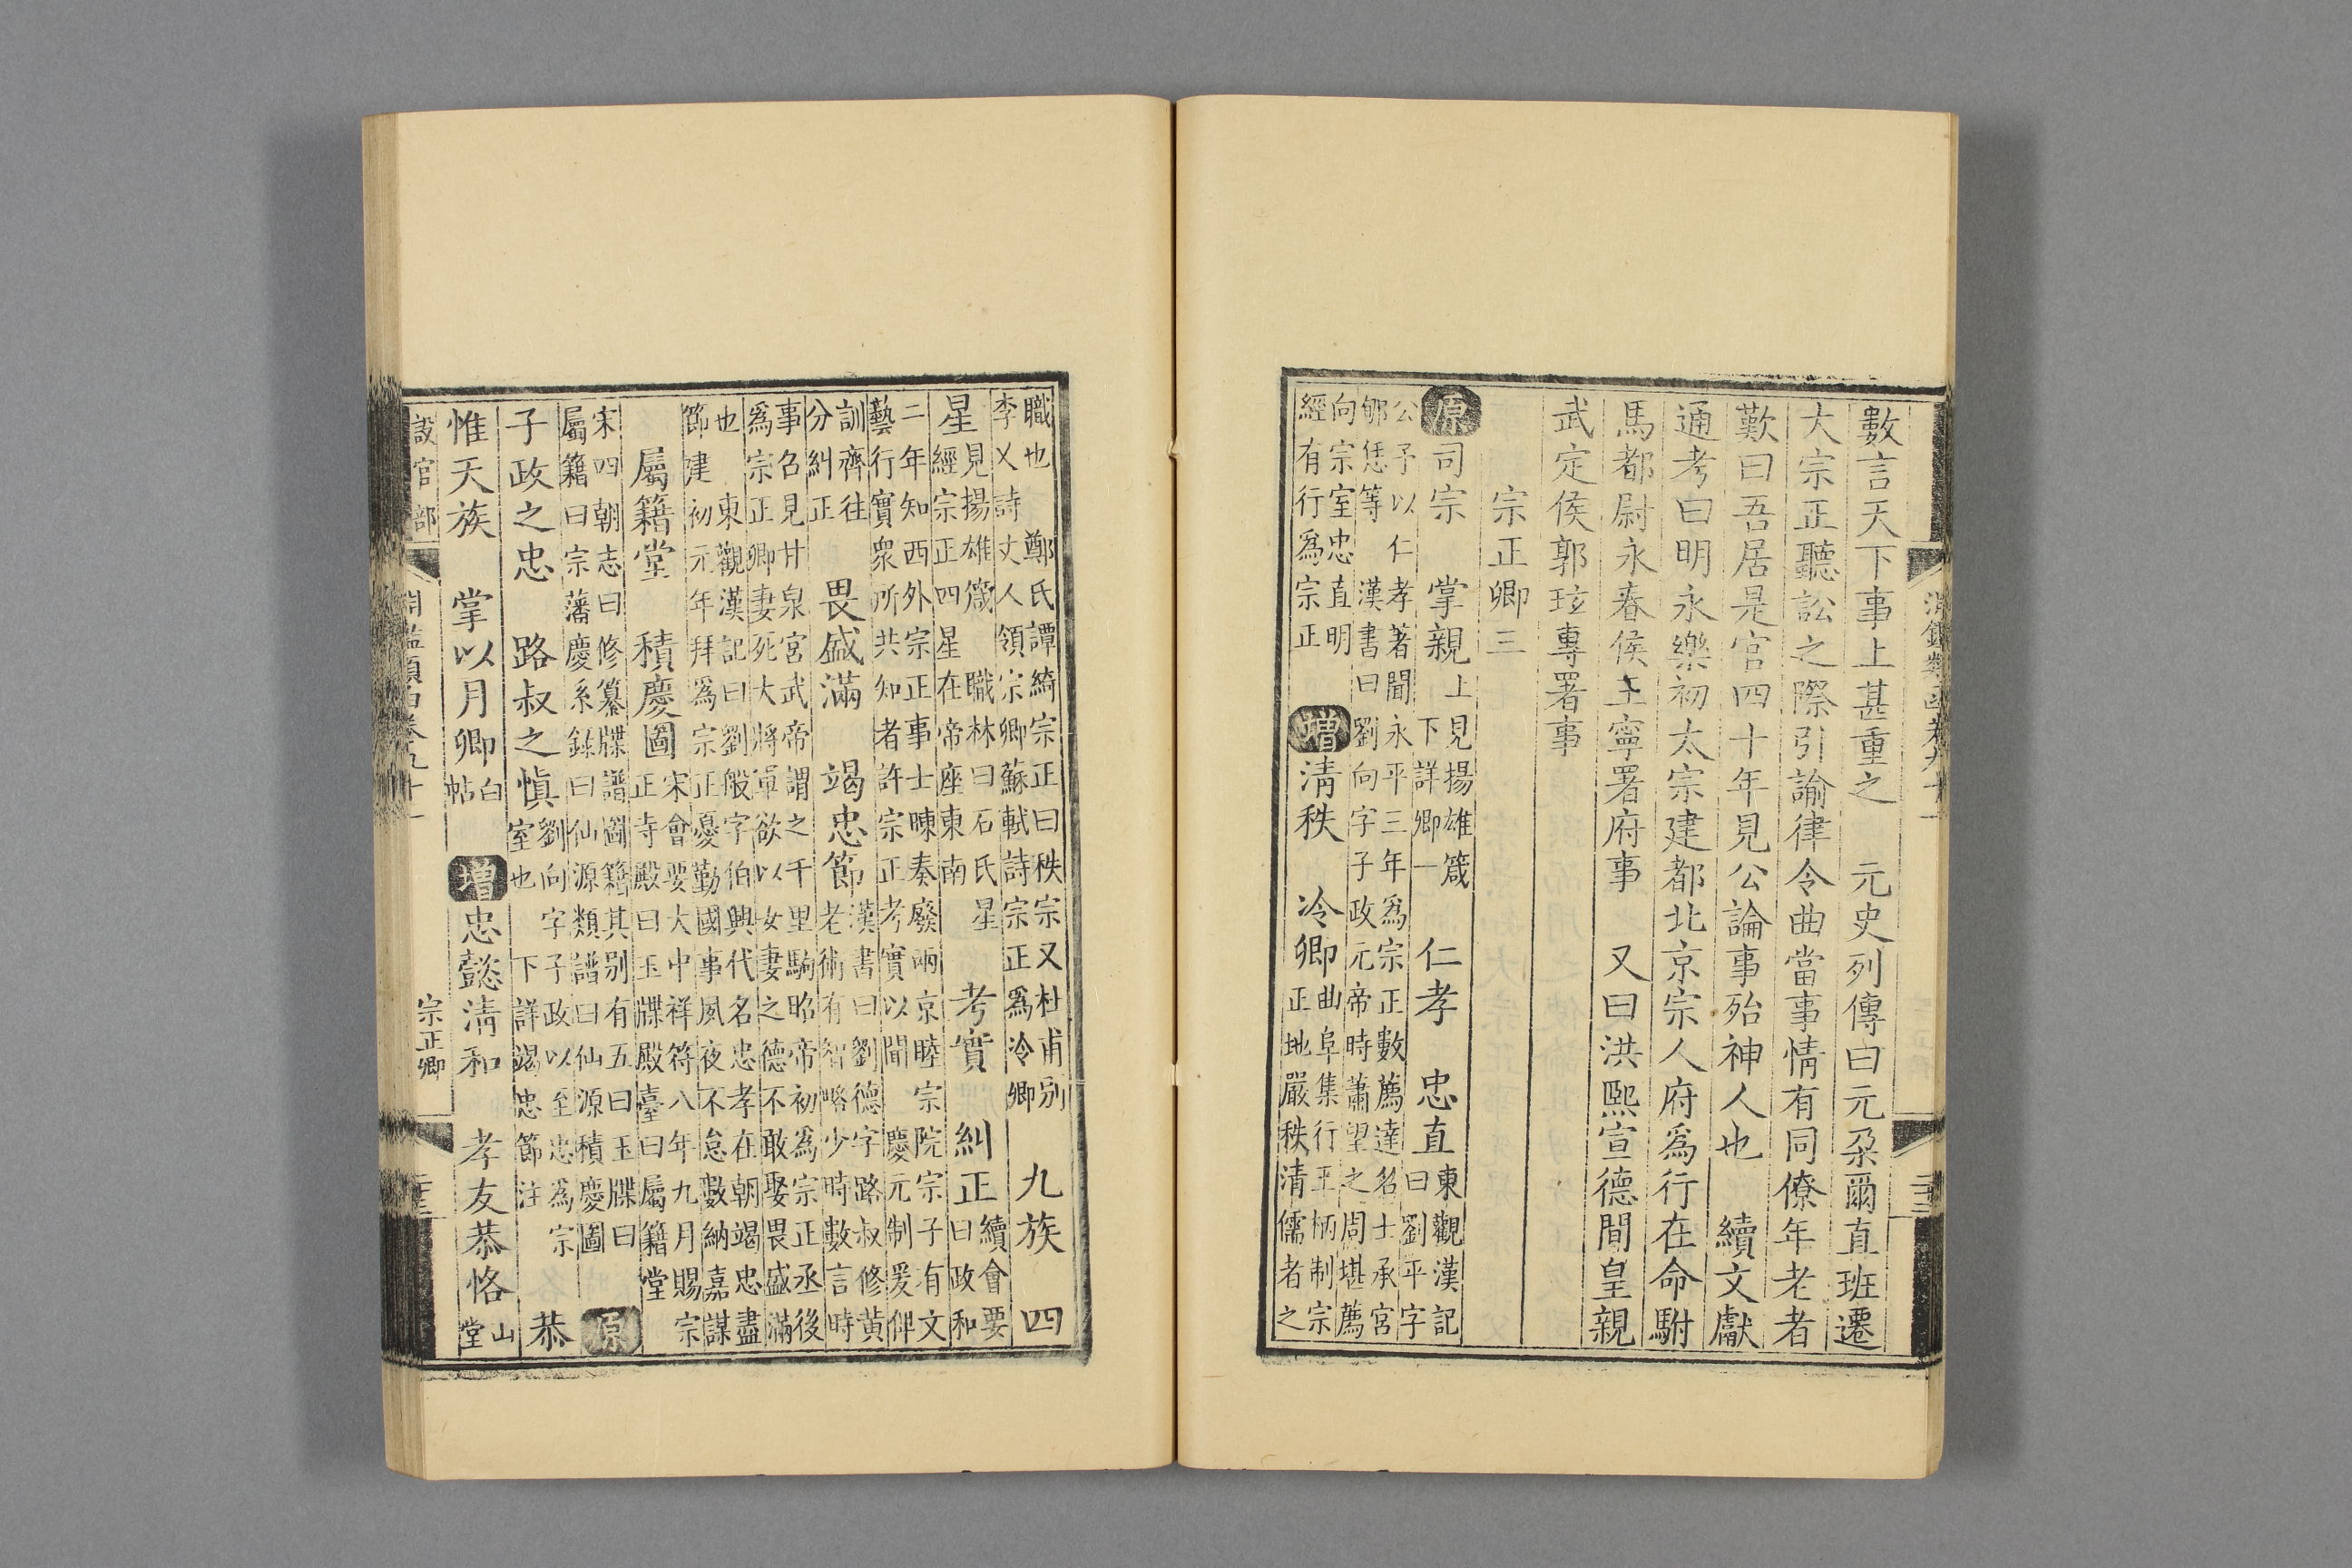 數言天下事上甚重之　元史列傳曰元朶爾直班遷
大宗正聽訟之際引諭律令曲當事情有同僚年老者
歎曰吾居是官四十年見公論事殆神人也　續文獻
通考曰明永樂初太宗建都北京宗人府爲行在命駙
馬都尉永春侯王寧署府事　又曰洪熙宣德間皇親
武定侯郭玹專署事
宗正卿三
原司宗　掌親上見揚雄箴
下詳卿一　仁孝　忠直東觀漢記
曰劉平字
公子以仁孝著聞永平三年爲宗正數薦達名士承宮
郇恁等　漢書曰劉向字子政元帝時蕭望之周堪薦
向宗室忠直明
經有行爲宗正　增清秩　冷卿曲阜集行王柄制宗
正地嚴秩清儒者之
職也　鄭氏譚綺宗正曰秩宗又杜甫別
李乂詩丈人領宗卿蘇軾詩宗正爲冷卿　九族　四
星見揚雄箴　職林曰石氏星
經宗正四星在帝座東南　考實　糾正續會要
曰政和
二年知西外宗正事士暕奏廢兩京睦宗院宗子有文
藝行實衆所共知者許宗正考實以聞　慶元制爰俾
訓齊往
分糾正　畏盛滿　竭忠節漢書曰劉德字路叔修黃
老術有智略少時數言時
事召見甘泉宮武帝謂之千里駒昭帝初爲宗正丞後
爲宗正卿妻死大將軍欲以女妻之德不敢娶畏盛滿
也　東觀漢記曰劉般字伯興代名忠孝在朝竭忠盡
節建初元年拜爲宗正憂勤國事夙夜不怠數納嘉謀
屬籍堂　積慶圖宋會要大中祥符八年九月賜宗
正寺殿曰玉牒殿臺曰屬籍堂
宋四朝志曰修纂牒譜圖籍其別有五曰玉牒曰
屬籍曰宗藩慶系錄曰仙源類譜曰仙源積慶圖　原
子政之忠　路叔之愼劉向字子政以至忠爲宗
室也　下詳竭忠節注　恭
惟天族　掌以月卿白
帖　增忠懿清和　孝友恭恪山
堂
設官部　淵鑑類函卷九十一　宗正卿